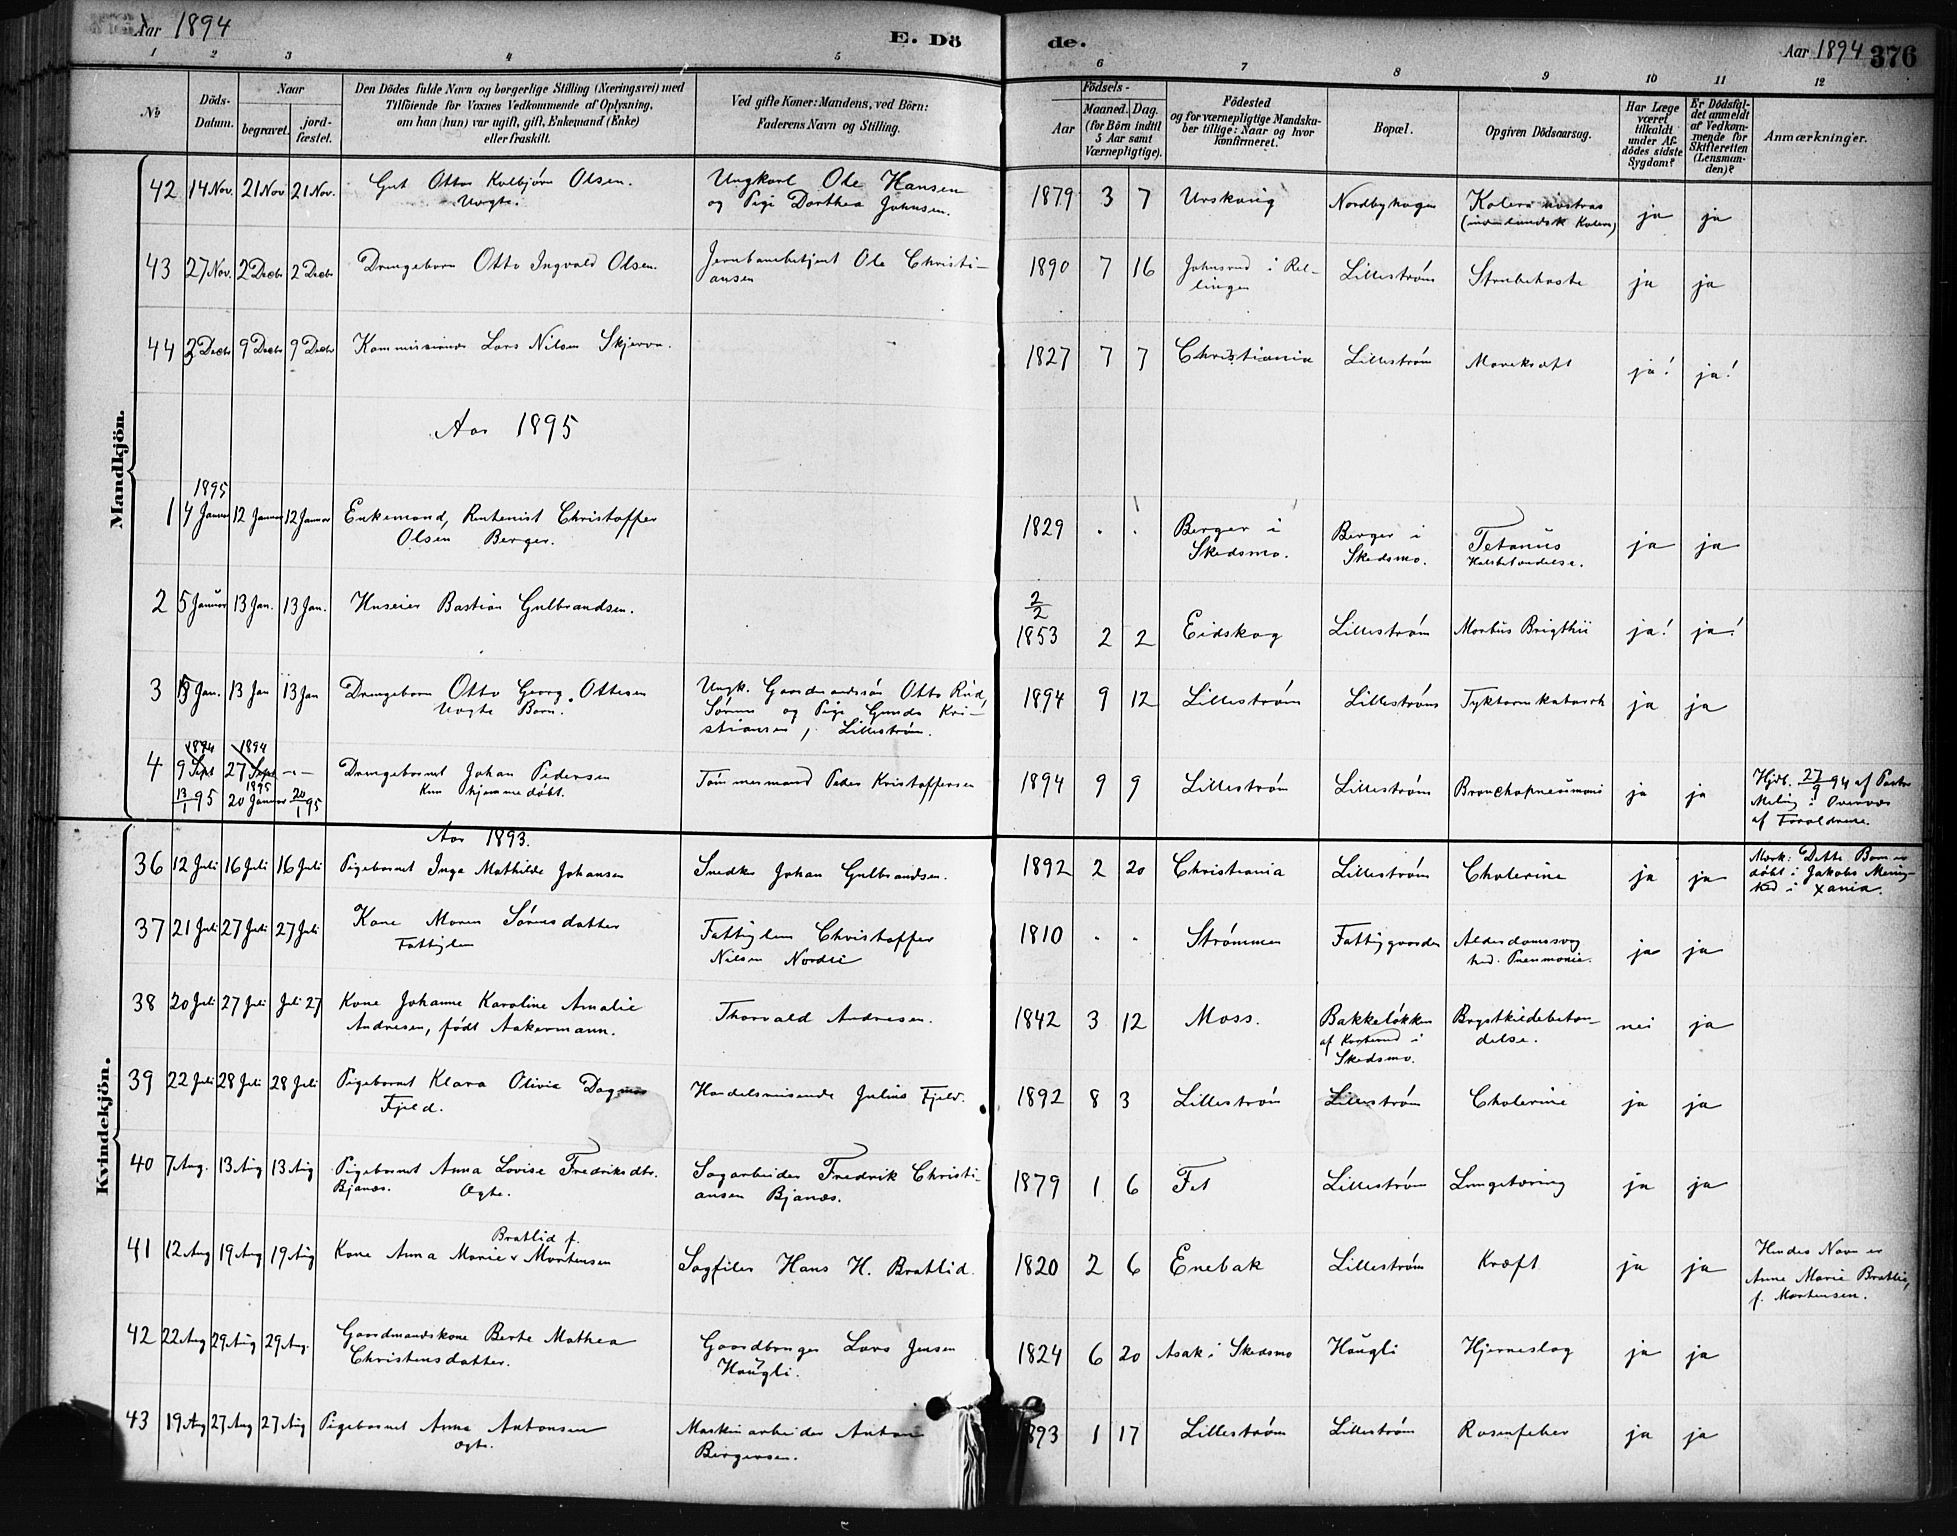 Aar 1894
E. Dö
de.
Aar 1894 376
1 2 3 4 5 6 7 8 9 10 11 12
No
Döds-Datum.
Naar
begravet.
jord-fæstet.
Den Dödes fulde Navn og borgerlige Stilling (Næringsvei) med
Tilföiende for Voxnes Vedkommende af Oplysning,
om han (hun) var ugift, gift, Enkemand (Enke)
eller fraskilt.
Ved gifte Koner: Mandens, ved Börn:
Faderens Navn og Stilling.
Födsels-
Aar
Maaned. Dag.
(for Börn indtil
5 Aar samt
Værnepligtige).
Födested
og for værnepligtige Mandska-
ber tillige: Naar og hvor
konfirmeret.
Bopæl.
Opgiven Dödsaarsag.
Har Læge
været
tilkaldt
under Af-
dödes sidste
Sygdom?
Er Dödsfal-
det anmeldt
af Vedkom-
mende for
Skifteretten
(Lensman-
den)?
Anmærkninger.
Mandkjön.
42 14 Nov. 21 Nov 21 Nov. Gut Otto Kolbjørn Olsen. Ungkarl Ole Hansen 1879 3 7 Urskoug Nordbyhagen Kolera nostras ja ja
Uegte. og Pige Dorthea Johnsen. (indenlandsk Kolera)
43 27 Nov. 2 Decbr 2 Decbr Drengebarn Otto Ingvald Olsen. Jernbanebetjent Ole Christi- 1890 7 16 Johnsrud i Ræl- Lillestrøm Strubehoste ja ja
ansen lingen
44 2 Decbr 9 Decbr 9 Decbr Kommissionær Lars Nilsen Skjerva. 1827 7 7 Christiania Lillestrøm Mavekræft ja! ja!
Aar 1895
1895
1 4 Januar 12 Januar 12 Januar Enkemand, Rentenist Christoffer 1829 . . Berger i Berger i Tetanus ja ja
Olsen Berger. Skedsmo. Skedsmo. Halsbetændelse.
2/2
2 5 Januar 13 Jan. 13 Jan. Huseier Bastian Gulbrandsen. 1853 2 2 Eidskog Lillestrøm Morbus Brigthii ja! ja!
3 Jan. 13 Jan 13 Jan Drengebarn Otto Georg Ottesen Ungk. Gaardmandssøn Otto Rud, 1894 9 12 Lillestrøm Lillestrøm Tyktarmkatarrh ja ja
Uegte Barn. Sørum og Pige Gunda Kri-
stiansen, Lillestrøm.
1894 1894
4 9 Sept 27 Sept - - Drengebarnet Johan Pedersen Tömmermand Peder Kristoffersen 1894 9 9 Lillestrøm Lillestrøm Bronchopneumoni ja ja Hjdb. 27/9 94 af Pastor
13/1 95 1895 20 Januar 20/1 95 Kun hjemmedøbt. i Overvær
af Forældrene.
Kvindekjön.
Aar 1893.
36 12 Juli 16 Juli 16 Juli Pigebarnet Inga Mathilde Johansen Snedker Johan Gulbrandsen. 1892 2 20 Christiania Lillestrøm Cholerine ja ja Mærk: Dette Barn er
døbt i Jakobs Menig-
hed i Xania.
37 21 Juli 27 Juli 27 Juli Kone Maren Sörensdatter Fattiglem Christoffer 1810 . . Strømmen Fattiggaarden Alderdomssvag- ja ja
Fattiglem Nilsen Nordli hed. Pneumonie.
38 20 Juli 27 Juli Juli 27 Kone Johanne Karoline Amalie Thorvald Andresen. 1842 3 12 Moss. Bakkeløkken Brystkildebetæn- nei ja
Andresen, født Aakermann. af i delse.
Skedsmo.
39 22 Juli 28 Juli 28 Juli Pigebarnet Klara Olivia Dagmar Handelsreisende Julius Fjeld. 1892 8 3 Lillestrøm Lillestrøm Cholerine ja ja
Fjeld.
40 7 Aug. 13 Aug 13 Aug Pigebarnet Anna Lovise Fredriksdtr. Sagarbeider Fredrik Christi- 1879 1 6 Fet Lillestrøm Lungetæring ja ja
Bjanæs. Ægte. ansen Bjanæs.
Bratlid f.
41 12 Aug 19 Aug 19 Aug Kone Anna Marie v Mortensen Sagfiler Hans H. Bratlid. 1820 2 6 Enebak Lillestrøm Kræft ja ja Hendes Navn er
Anne Marie Bratlid,
f. Mortensen.
42 22 Aug 29 Aug 29 Aug. Gaardmandskone Berte Mathea Gaardbruger Lars Jensen 1824 6 20 Asak i Skedsmo Haugli Hjerneslag ja ja
Christensdatter. Haugli.
43 19 Aug 27 Aug 27 Aug Pigebarnet Anna Antonsen Maskinarbeider Anton 1893 1 17 Lillestrøm Lillestrøm Rosenfeber ja ja
Ægte. Bergersen.